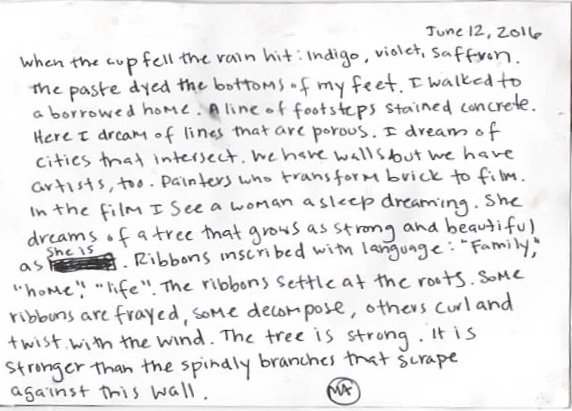 June 12, 2016
When the cup fell the rain hit: Indigo, violet, Saffron.
The paste dyed the bottoms of my feet. I walked to
a borrowed home. A line of footsteps stained concrete.
Here I dream of lines that are porous. I dream of
cities that intersect. We have walls but we have
artists, too. Painters who transform brick to film.
In the film I see a woman asleep dreaming. She
dreams of a tree that grows as strong and beautiful
as she is. Ribbons inscribed with language: "Family,"
"home," "life". The ribbons settle at the roots. Some
ribbons are frayed, some decompose, others curl and
twist with the wind. The tree is strong. It is
stronger than the spindly branches that scrape
against this wall.
MA